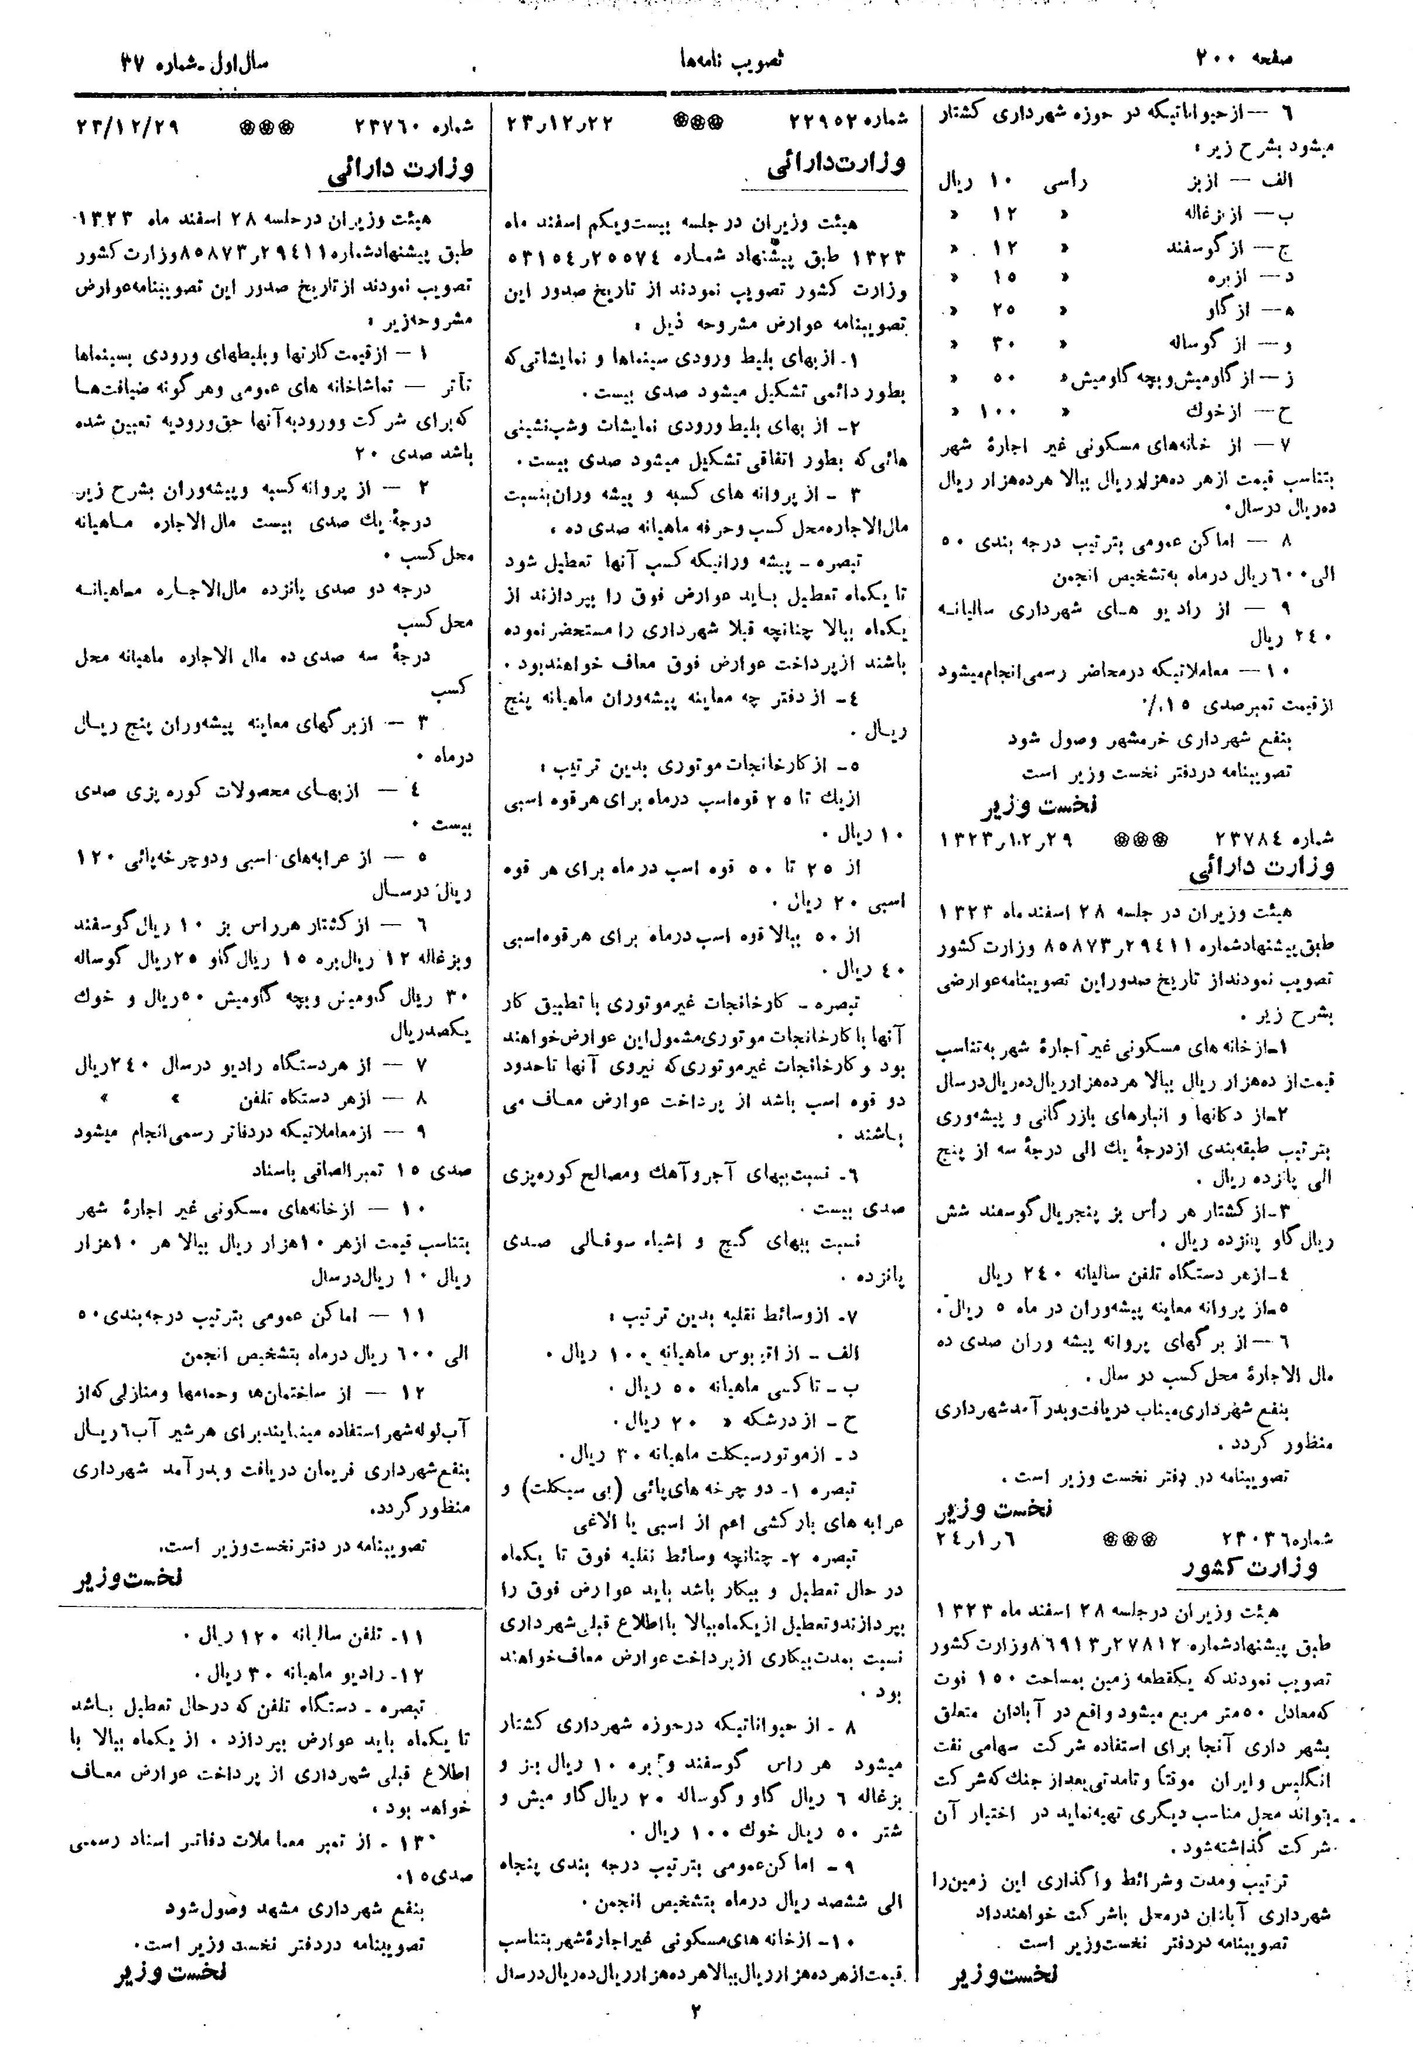 صفحه ۲۰۰
تصویب نامه‌ها
سال اول ـ شماره ۳۷
۶ — از حیواناتیکه در حوزه شهرداری کشتار
میشود بشرح زیر :
الف — از بز رأسی ۱۰ ریال
ب — از بزغاله » ۱۲ »
ج — از گوسفند » ۱۲ »
د — از بره » ۱۵ »
ه — از گاو » ۲۵ »
و — از گوساله » ۳۰ »
ز — از گاومیش و بچه گاومیش » ۵۰ »
ح — از خوک » ۱۰۰ »
۷ — از خانه‌های مسکونی غیر اجارهٔ شهر
بتناسب قیمت از هر ده هزار ریال ببالا هر ده هزار ریال
ده ریال در سال.
۸ — اماکن عمومی بترتیب درجه بندی ۵۰
الی ۶۰۰ ریال در ماه به تشخیص انجمن
۹ — از رادیو های شهرداری سالیانه
۲۴۰ ریال
۱۰ — معاملاتیکه در محاضر رسمی انجام میشود
از قیمت تمبر صدی ۱۵٪
بنفع شهرداری خرمشهر وصول شود
تصویبنامه در دفتر نخست وزیر است
نخست وزیر
شماره ۲۳۷۸٤ ۲۹ر۱۲ر۱۳۲۳
وزارت دارائی
هیئت وزیران در جلسه ۲۸ اسفند ماه ۱۳۲۳
طبق پیشنهاد شماره ۲۹٤۱۱ر۸۵۸۷۳ وزارت کشور
تصویب نمودند از تاریخ صدور این تصویبنامه عوارضی
بشرح زیر .
۱ـ از خانه های مسکونی غیر اجارهٔ شهر به تناسب
قیمت از ده هزار ریال ببالا هر ده هزار ریال ده ریال در سال
۲ـ از دکانها و انبارهای بازرگانی و پیشه‌وری
بترتیب طبقه‌بندی از درجهٔ یك الی درجهٔ سه از پنج
الی پانزده ریال .
۳ـ از کشتار هر رأس بز پنج ریال گوسفند شش
ریال گاو پانزده ریال .
٤ـ از هر دستگاه تلفن سالیانه ۲٤۰ ریال
۵ـ از پروانه معاینه پیشه‌وران در ماه ۵ ریال.
۶ — از برگهای پروانه پیشه وران صدی ده
مال الاجارهٔ محل کسب در سال .
بنفع شهرداری میناب دریافت و بدرآمد شهرداری
منظور گردد .
تصویبنامه در دفتر نخست وزیر است .
نخست وزیر
شماره ۲۳۰۳۶ ۶ر۱ر۲٤
وزارت کشور
هیئت وزیران در جلسه ۲۸ اسفند ماه ۱۳۲۳
طبق پیشنهاد شماره ۲۷۸۱۲ر۸۶۹۱۳ وزارت کشور
تصویب نمودند که یکقطعه زمین بمساحت ۱۵۰ فوت
که معادل ۵۰ متر مربع میشود واقع در آبادان متعلق
بشهر داری آنجا برای استفاده شرکت سهامی نفت
انگلیس و ایران موقتاً و تا مدتی بعد از جنك که شرکت
بتواند محل مناسب دیگری تهیه نماید در اختیار آن
شرکت گذاشته شود .
ترتیب و مدت و شرائط واگذاری این زمین را
شهرداری آبادان در محل با شرکت خواهند داد
تصویبنامه در دفتر نخست وزیر است
نخست وزیر
شماره ۲۲۹۵۲ ۲۲ر۱۲ر۲۳
وزارت دارائی
هیئت وزیران در جلسه بیست و یکم اسفند ماه
۱۳۲۳ طبق پیشنهاد شماره ۲۵۵۷٤ر۵۳۱۵٤
وزارت کشور تصویب نمودند از تاریخ صدور این
تصویبنامه عوارض مشروحه ذیل :
۱ـ از بهای بلیط ورودی سینماها و نمایشاتی که
بطور دائمی تشکیل میشود صدی بیست .
۲ـ از بهای بلیط ورودی نمایشات و شب نشینی
هائی که بطور اتفاقی تشکیل میشود صدی بیست .
۳ ـ از پروانه های کسبه و پیشه وران بنسبت
مال الاجاره محل کسب و حرفه ماهیانه صدی ده .
تبصره ـ پیشه ورانیکه کسب آنها تعطیل شود
تا یکماه تعطیل باید عوارض فوق را بپردازند از
یکماه ببالا چنانچه قبلا شهرداری را مستحضر نموده
باشند از پرداخت عوارض فوق معاف خواهند بود .
٤ـ از دفتر چه معاینه پیشه‌وران ماهیانه پنج
ریال .
۵ـ از کارخانجات موتوری بدین ترتیب :
از یك تا ۲۵ قوه اسب در ماه برای هر قوه اسبی
۱۰ ریال .
از ۲۵ تا ۵۰ قوه اسب در ماه برای هر قوه
اسبی ۲۰ ریال .
از ۵۰ ببالا قوه اسب در ماه برای هر قوه اسبی
٤۰ ریال .
تبصره ـ کارخانجات غیر موتوری با تطبیق کار
آنها با کارخانجات موتوری مشمول این عوارض خواهند
بود و کارخانجات غیر موتوری که نیروی آنها تا حدود
دو قوه اسب باشد از پرداخت عوارض معاف می
باشند .
۶ـ نسبت ببهای آجر و آهك و مصالح کوره پزی
صدی بیست .
نسبت ببهای گچ و اشیاء سوفالی صدی
پانزده .
۷ـ از وسائط نقلیه بدین ترتیب :
الف ـ از اتوبوس ماهیانه ۱۰۰ ریال .
ب ـ تاکسی ماهیانه ۵۰ ریال .
ح ـ از درشکه » ۲۰ ریال .
د ـ از موتورسیکلت ماهیانه ۳۰ ریال .
تبصره ۱ـ دو چرخه های پائی (بی سیکلت) و
عرابه های بارکشی اعم از اسبی یا الاغی
تبصره ۲ـ چنانچه وسائط نقلیه فوق تا یکماه
در حال تعطیل و بیکار باشد باید عوارض فوق را
بپردازند و تعطیل از یکماه ببالا با اطلاع قبلی شهرداری
نسبت بمدت بیکاری از پرداخت عوارض معاف خواهند
بود .
۸ ـ از حیواناتیکه در حوزه شهرداری کشتار
میشود هر راس گوسفند و بره ۱۰ ریال بز و
بزغاله ۶ ریال گاو و گوساله ۲۰ ریال گاو میش و
شتر ۵۰ ریال خوك ۱۰۰ ریال .
۹ـ اماکن عمومی بترتیب درجه بندی پنجاه
الی ششصد ریال در ماه بتشخیص انجمن .
۱۰ـ از خانه های مسکونی غیر اجارهٔ شهر بتناسب
قیمت از هر ده هزار ریال ببالا هر ده هزار ریال ده ریال در سال
شماره ۲۳۷۶۰ ۲۳/۱۲/۲۹
وزارت دارائی
هیئت وزیران در جلسه ۲۸ اسفند ماه ۱۳۲۳
طبق پیشنهاد شماره ۲۹٤۱۱ر۸۵۸۷۳ وزارت کشور
تصویب نمودند از تاریخ صدور این تصویبنامه عوارض
مشروحه زیر :
۱ — از قیمت کارتها و بلیطهای ورودی بسینماها
تآتر — تماشاخانه های عمومی و هر گونه ضیافت‌ها
که برای شرکت و ورود به آنها حق ورودیه تعیین شده
باشد صدی ۲۰
۲ — از پروانه کسبه و پیشه‌وران بشرح زیر
درجهٔ یك صدی بیست مال الاجاره ماهیانه
محل کسب .
درجه دو صدی پانزده مال الاجاره ماهیانه
محل کسب
درجهٔ سه صدی ده مال الاجاره ماهیانه محل
کسب
۳ — از برگهای معاینه پیشه‌وران پنج ریال
در ماه .
٤ — از بهای محصولات کوره پزی صدی
بیست .
۵ — از عرابه‌های اسبی و دو چرخه پائی ۱۲۰
ریال در سال
۶ — از کشتار هر راس بز ۱۰ ریال گوسفند
و بزغاله ۱۲ ریال بره ۱۵ ریال گاو ۲۵ ریال گوساله
۳۰ ریال گاومیش و بچه گاومیش ۵۰ ریال و خوك
یکصد ریال
۷ — از هر دستگاه رادیو در سال ۲٤۰ ریال
۸ — از هر دستگاه تلفن » »
۹ — از معاملاتیکه در دفاتر رسمی انجام میشود
صدی ۱۵ تمبر الصاقی باسناد
۱۰ — از خانه‌های مسکونی غیر اجارهٔ شهر
بتناسب قیمت از هر ۱۰ هزار ریال ببالا هر ۱۰ هزار
ریال ۱۰ ریال در سال
۱۱ — اماکن عمومی بترتیب درجه بندی ۵۰
الی ۶۰۰ ریال در ماه بتشخیص انجمن
۱۲ — از ساختمان‌ها و حمامها و منازلی که از
آب لوله شهر استفاده مینمایند برای هر شیر آب ۶ ریال
بنفع شهرداری فریمان دریافت و بدرآمد شهرداری
منظور گردد.
تصویبنامه در دفتر نخست وزیر است.
نخست وزیر
۱۱ـ تلفن سالیانه ۱۲۰ ریال .
۱۲ـ رادیو ماهیانه ۳۰ ریال .
تبصره ـ دستگاه تلفن که در حال تعطیل باشد
تا یکماه باید عوارض بپردازد . از یکماه ببالا با
اطلاع قبلی شهرداری از پرداخت عوارض معاف
خواهد بود .
۱۳ ـ از تمبر معاملات دفاتر اسناد رسمی
صدی ۱۵.
بنفع شهرداری مشهد وصول شود
تصویبنامه در دفتر نخست وزیر است.
نخست وزیر
۲